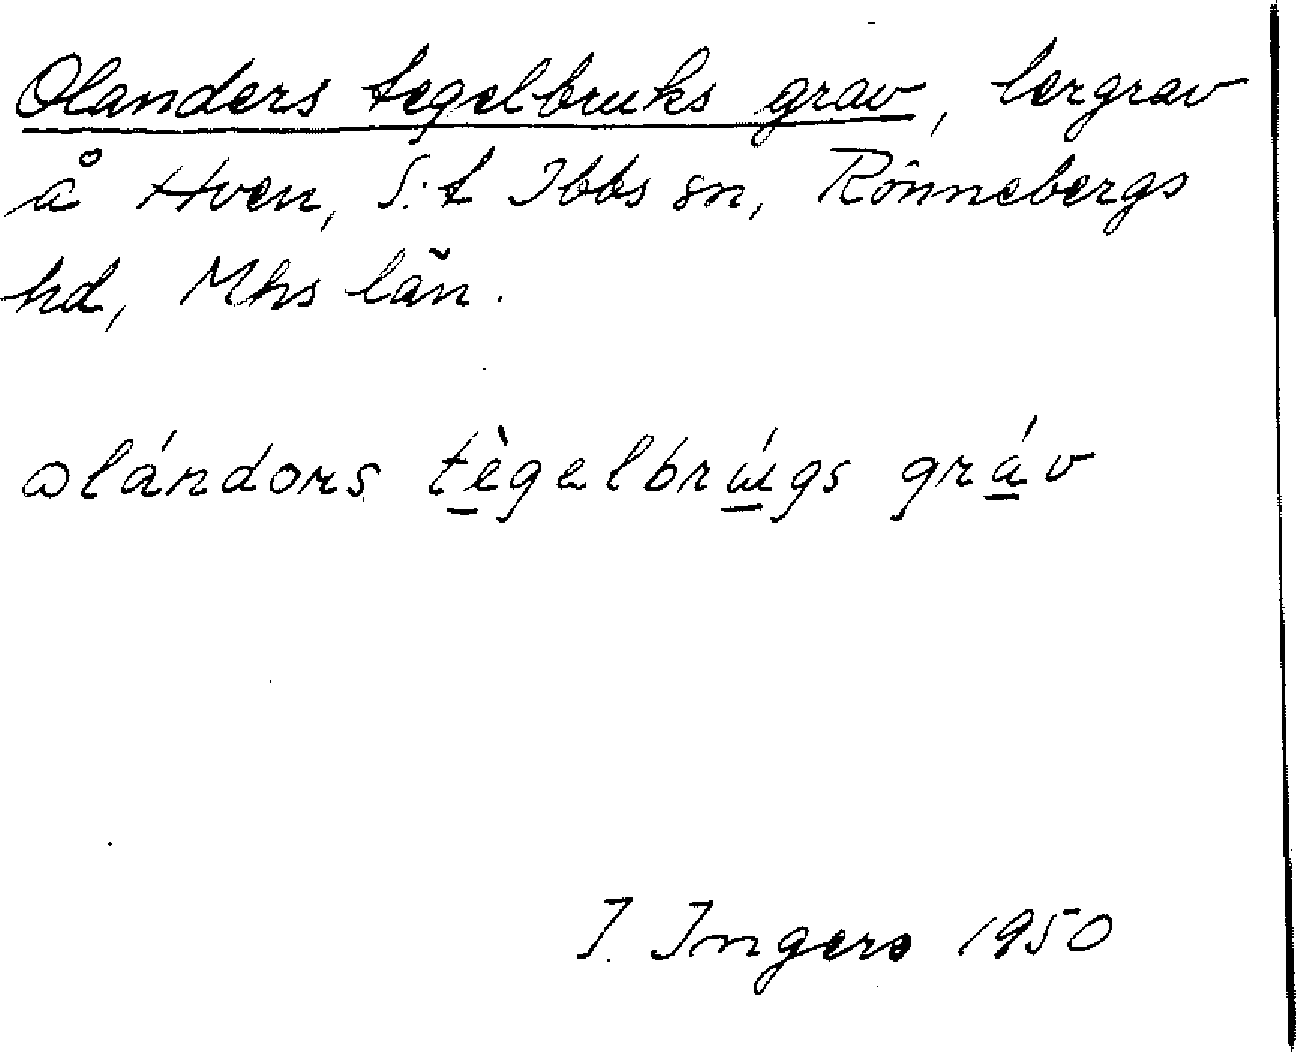 Olanders tegelbruks grav, lergrav
å Hven, S:t Ibbs sn, Rönnebergs
hd, Mhs län.
ωlándors tègelbrúgs gráv
I. Ingers 1950